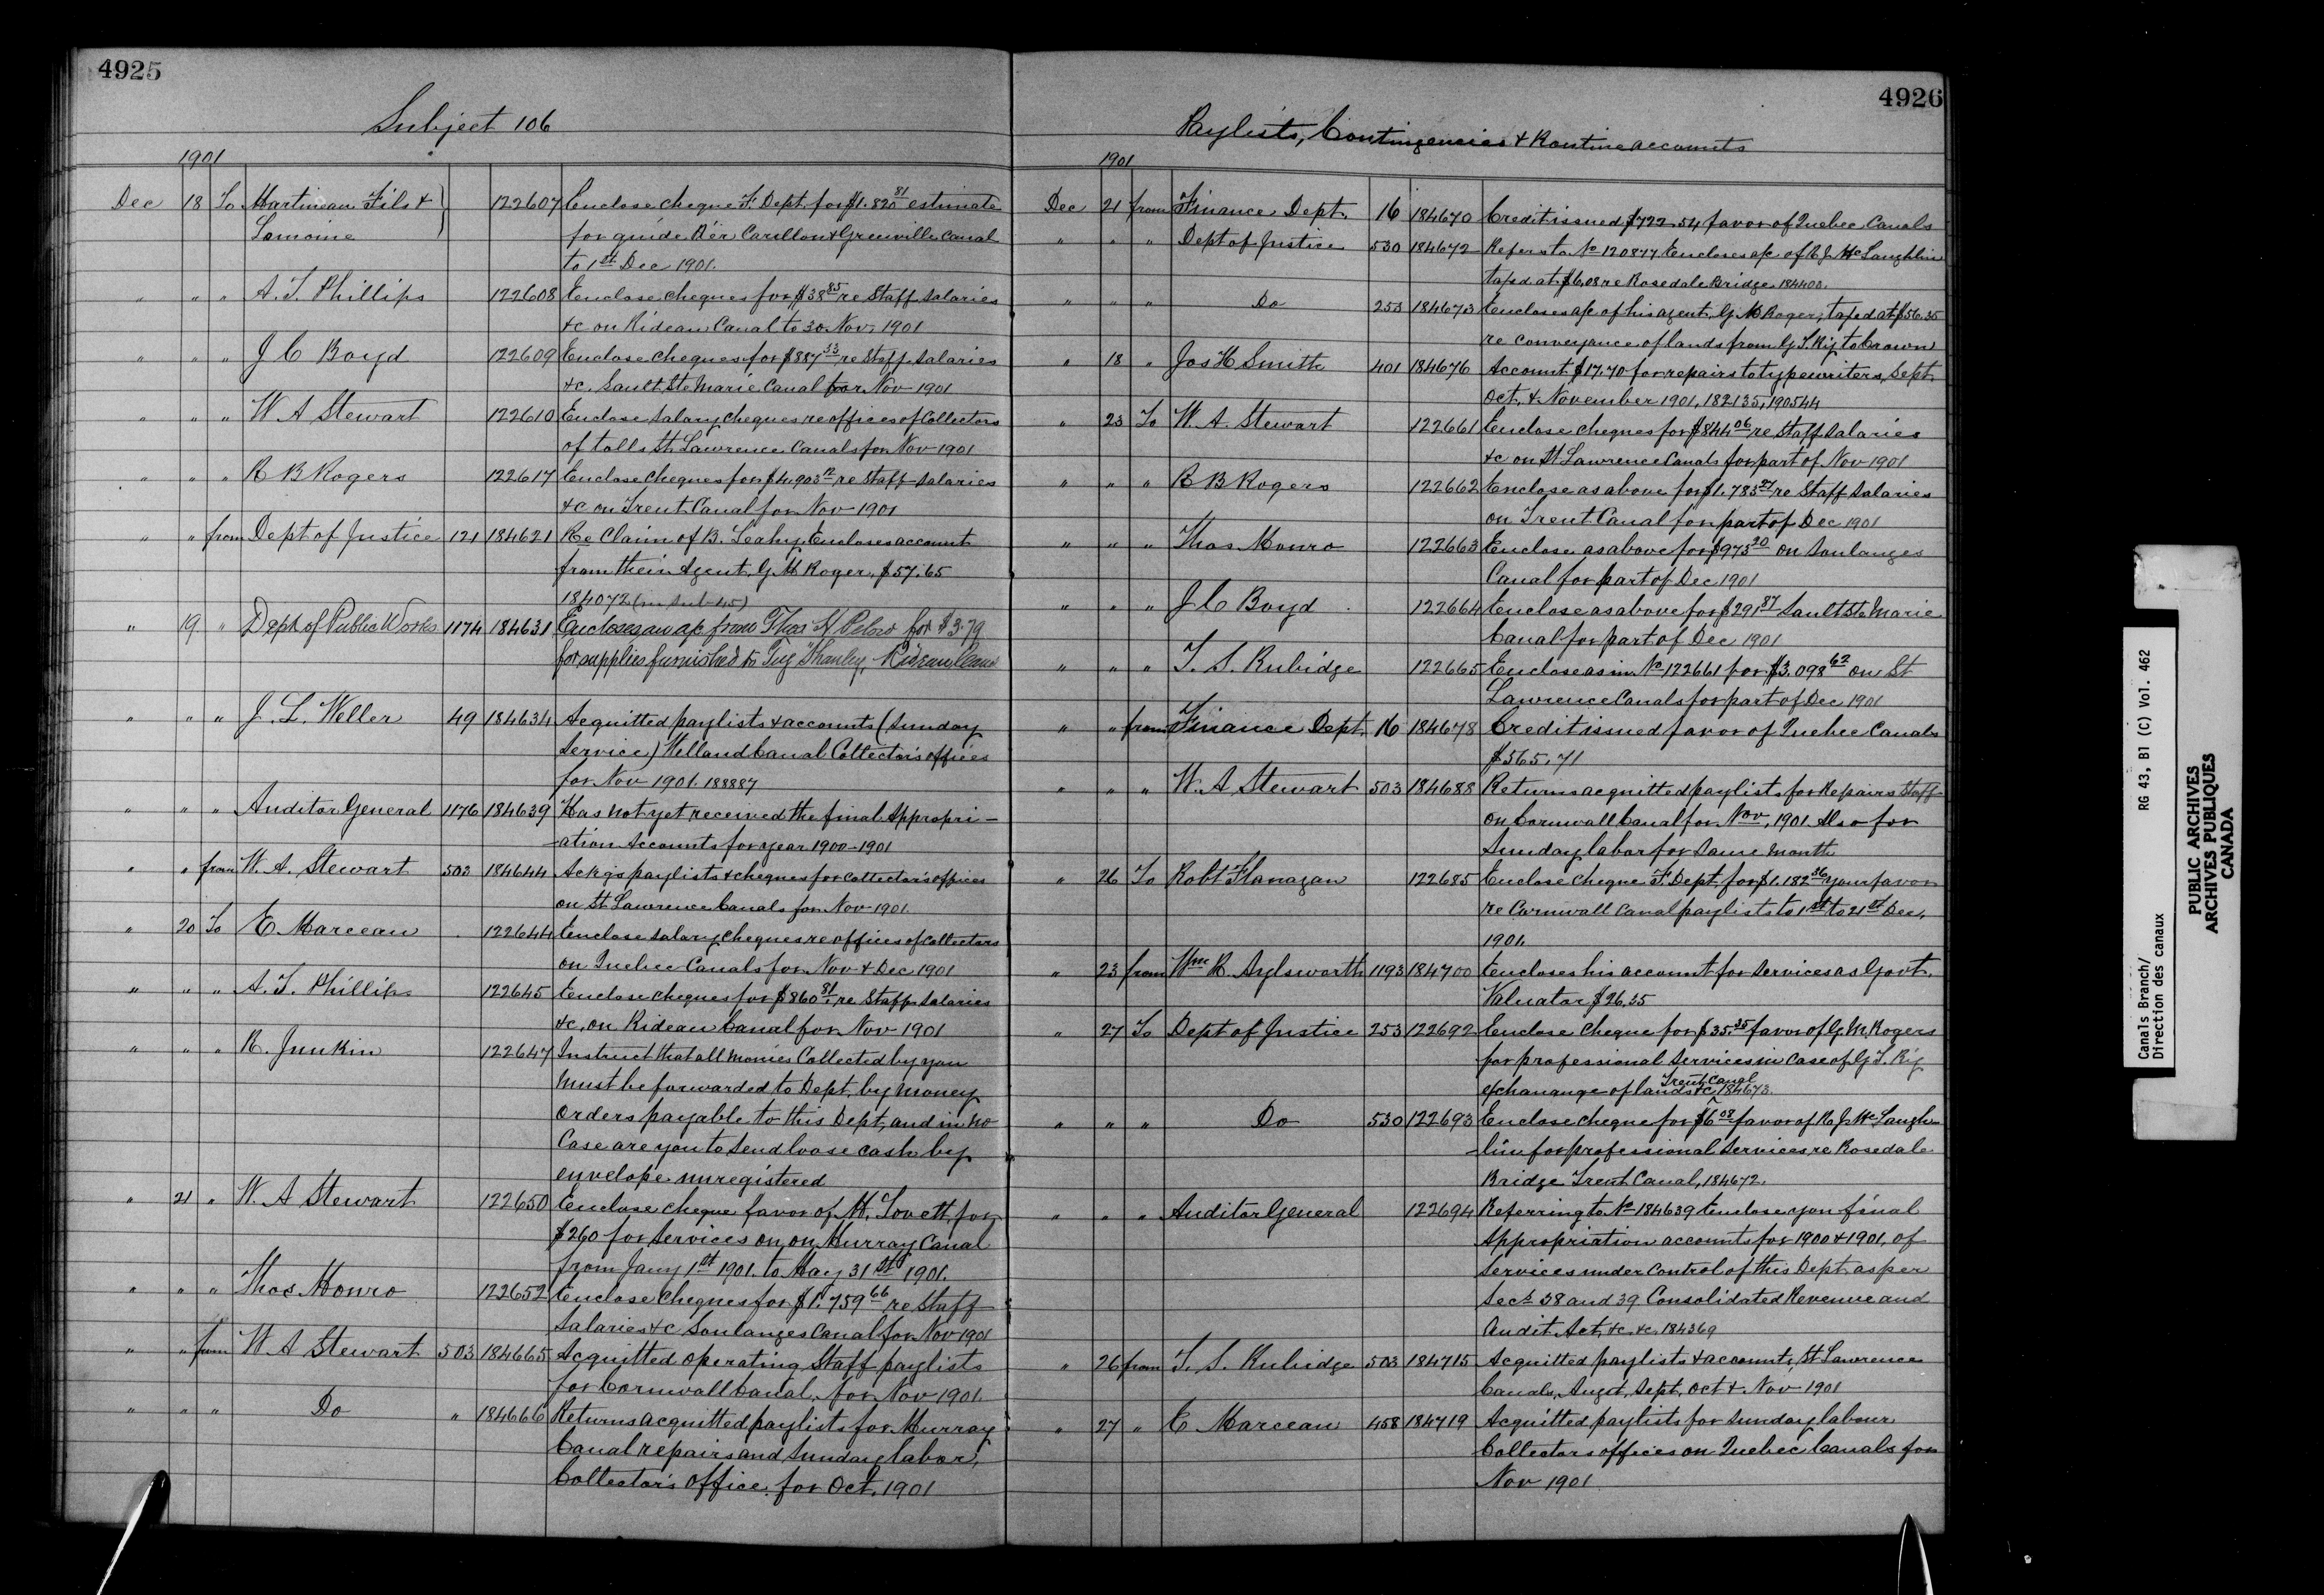 4925
Subject 106
1901
Dec 18 To Martineau Fils & 122607 Enclose cheque F. Dept. for $1.820 81 estimate
Lemoine for guide Pier Carillon & Grenville Canal
to 1st Dec 1901.
" " " A. T. Phillips 122608 Enclose cheques for $38 85 re Staff salaries
&c on Rideau Canal to 30 Nov. 1901
" " " J C Boyd 122609 Enclose cheques for $887 33 re Staff salaries
&c. Sault Ste Marie Canal for Nov 1901
" " " W A Stewart 122610 Enclose salary cheques re offices of Collectors
of tolls St Lawrence Canals for Nov 1901
" " " R B Rogers 122617 Enclose cheques for $4.903 12 re Staff salaries
&c on Trent Canal for Nov 1901
" " from Dept of Justice 121 184621 Re Claim of B. Leahy. Encloses account
from their Agent, G M Roger, $57.65
184072 (in Sub 45)
" 19 " Dept of Public Works 1174 184631 Encloses an a/c from Thos H for $3.79
for supplies furnished to Tug Shanly, Rideau Canal
" " " J. L. Weller 49 184634 Acquitted paylists & accounts (Sunday
Service) Welland Canal Collector's offices
for Nov 1901. 188887
" " " Auditor General 1176 184639 Has not yet received the final Appropri-
ation Accounts for year 1900-1901
" " from W. A. Stewart 503 184644 Ackgs paylists & cheques for Collector's offices
on St Lawrence Canals for Nov 1901.
" 20 To E. Marceau 122644 Enclose salary cheques re offices of Collectors
on Quebec Canals for Nov & Dec 1901
" " " A. T. Phillips 122645 Enclose cheques for $860 81 re Staff salaries
&c. on Rideau Canal for Nov 1901
" " " R. Junkin 122647 Instruct that all monies Collected by you
must be forwarded to Dept. by money
orders payable to this Dept, and in no
Case are you to send loose cash by
envelope unregistered
" 21 " W. A Stewart 122650 Enclose cheque favor of M. Lovett, for
$260 for services on on Murray Canal
from Jany 1st 1901. to May 31st 1901.
" " " Thos Monro 122652 Enclose cheques for $1.759 66 re Staff
Salaries &c Soulanges Canal for Nov 1901
" " from W A Stewart 503 184665 Acquitted operating Staff paylists
for Cornwall Canal, for Nov 1901.
" " " Do " 184666 Returns acquitted paylist for Murray
Canal repairs and Sunday labor,
Collector's office for Oct. 1901
4926
Paylists, Contingencies & Routine accounts
1901
Dec 21 from Finance Dept. 16 184670 Credit issued $722.54 favor of Quebec Canals
" " " Dept of Justice 530 184672 Refers to No 120877 Encloses a/c of R J. McLaughlin
taxed at $6.08 re Rosedale Bridge. 184400.
" " " Do 253 184673 Encloses a/c of his agent, G. M Roger, taxed at $56.35
re conveyance of lands from G T. Rig to Crown
" 18 " Jos H Smith 401 184676 Account $17.70 for repairs to typewriters, Sept.
Oct. & November 1901, 182135, 190544
" 23 To W. A. Stewart 122661 Enclose cheques for $844 06 re Staff salaries
&c on St Lawrence Canals for part of Nov 1901
" " " R B Rogers 122662 Enclose as above for $1.783 27 re Staff salaries
on Trent Canal for part of Dec 1901
" " " Thos Monro 122663 Enclose as above for $973 20 on Soulanges
Canal for part of Dec 1901
" " " J C Boyd 122664 Enclose as above for $291 87 Sault Ste Marie
Canal for part of Dec 1901
" " " T. S. Rubidge 122665 Enclose as in No 122661 for $3.098 62 on St
Lawrence Canals for part of Dec 1901
" " from Finance Dept. 16 184678 Credit issued favor of Quebec Canals
$565.71
" " " W. A Stewart 503 184688 Returns acquitted paylists for Repairs Staff
on Cornwall Canal for Nov. 1901. Also for
Sunday labor for same month
" 26 To Robt Flanagan 122685 Enclose cheque F. Dept for $1.182 36 your favor
re Cornwall Canal paylists to 1st to 21st Dec.
1901.
" 23 from Wm R. Aylsworth 1193 184700 Encloses his account for services as Govt.
Valuator $26.35
" 27 To Dept of Justice 253 122692 Enclose cheque for $35.35 favor of G. M. Rogers
for professional services in case of G T. Rig
Trent Canal
exchanange of lands &c, 184673.
" " " Do 530 122693 Enclose cheque for $6 08 favor of R J. McLaugh-
lin for professional services re Rosedale
Bridge Trent Canal, 184672.
" " " Auditor General 122694 Referring to No 184639 Enclose you final
Appropriation accounts for 1900 & 1901, of
services under control of this Dept. as per
Secs 38 and 39 Consolidated Revenue and
Audit Act, &c. &c. 184369
" 26 from T. S. Rubidge 503 184715 Acquitted paylists & accounts, St Lawrence
Canals, Augst, Sept, Oct & Nov 1901
" 27 " E Marceau 458 184719 Acquitted paylists for Sunday labour
Collectors offices on Quebec Canals for
Nov 1901
Canals Branch/ RG 43, B1 (C) Vol. 462
Direction des canaux
PUBLIC ARCHIVES
ARCHIVES PUBLIQUES
CANADA